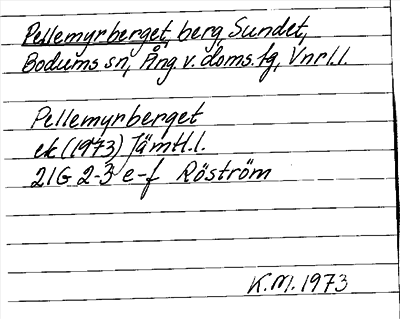 Pellemyrberget, berg, Sundet,
Bodums sn, Ång v. doms.lg, Vnrl.l.
Pellemyrberget
ek (1973) Jämtl.l.
21G 2-3 e-f Röström
K.M. 1973